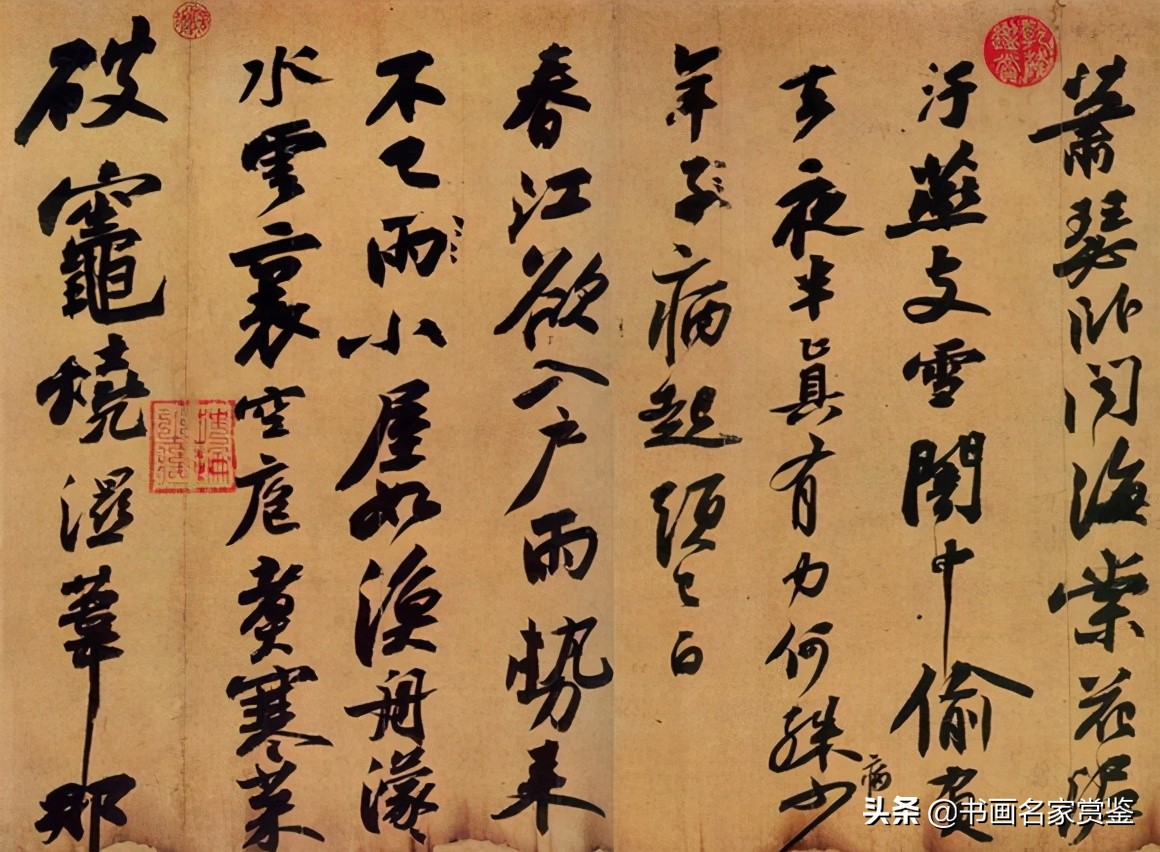 蕭瑟卧聞海棠花泥
汙燕支雪闇中偷負
去夜半真有力何殊少
病
年子病起須已白
春江欲入户雨勢来
不已雨小屋如漁舟濛〻
水雲裏空庖煑寒菜
破竈燒濕葦那
乾隆鑑賞
头条 @书画名家赏鉴